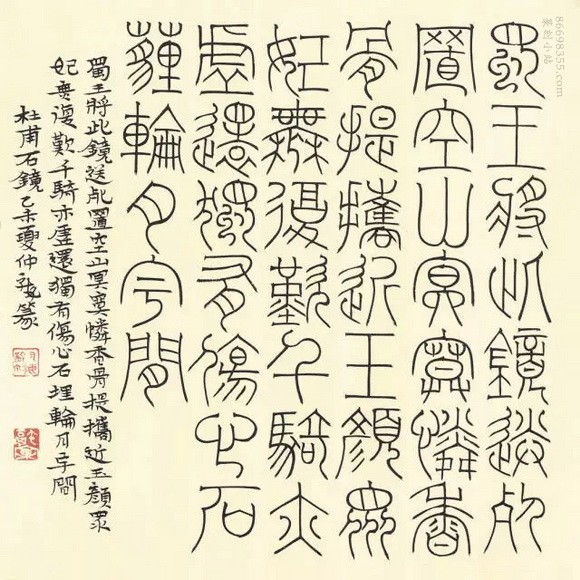 蜀王將此鏡送死
置空山冥寞憐香
骨提攜近玉顏眾
妃無復歎千騎亦
虛還獨有傷心石
薶輪月宇間
蜀王將此鏡送死置空山冥寞憐香骨提攜近玉顏眾
妃無復歎千騎亦虛還獨有傷心石埋輪月宇間
杜甫石鏡乙未夏仲篆
86698355.com
小站